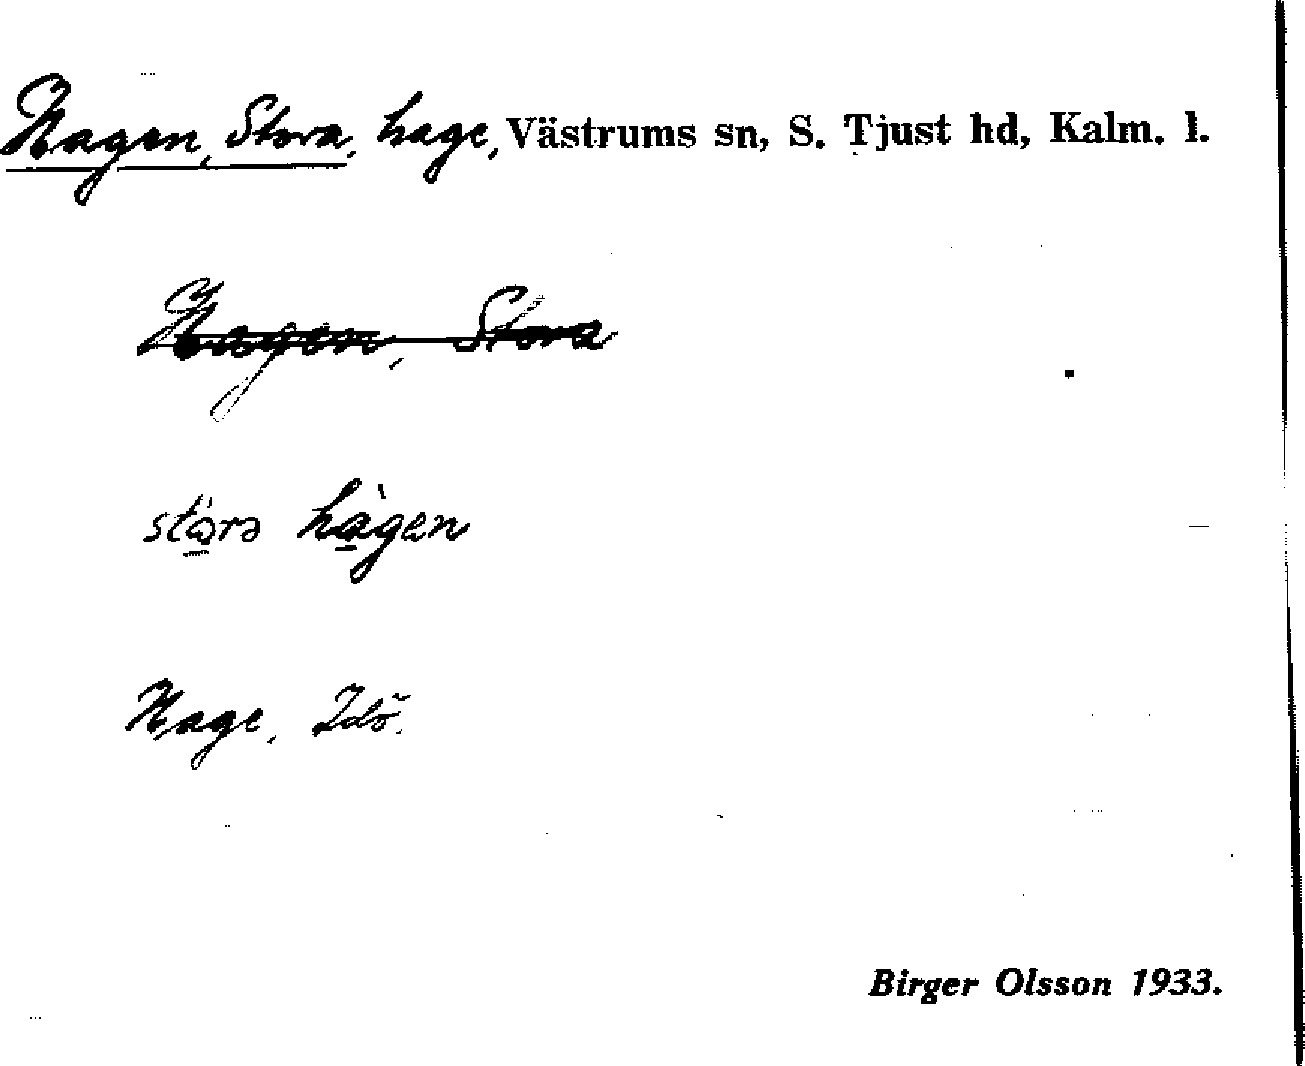 Hagen, Stora, hage, Västrums sn, S. Tjust hd, Kalm. l.
Hagen, Stora
störa hàgen
Hage, Idö.
Birger Olsson 1933.